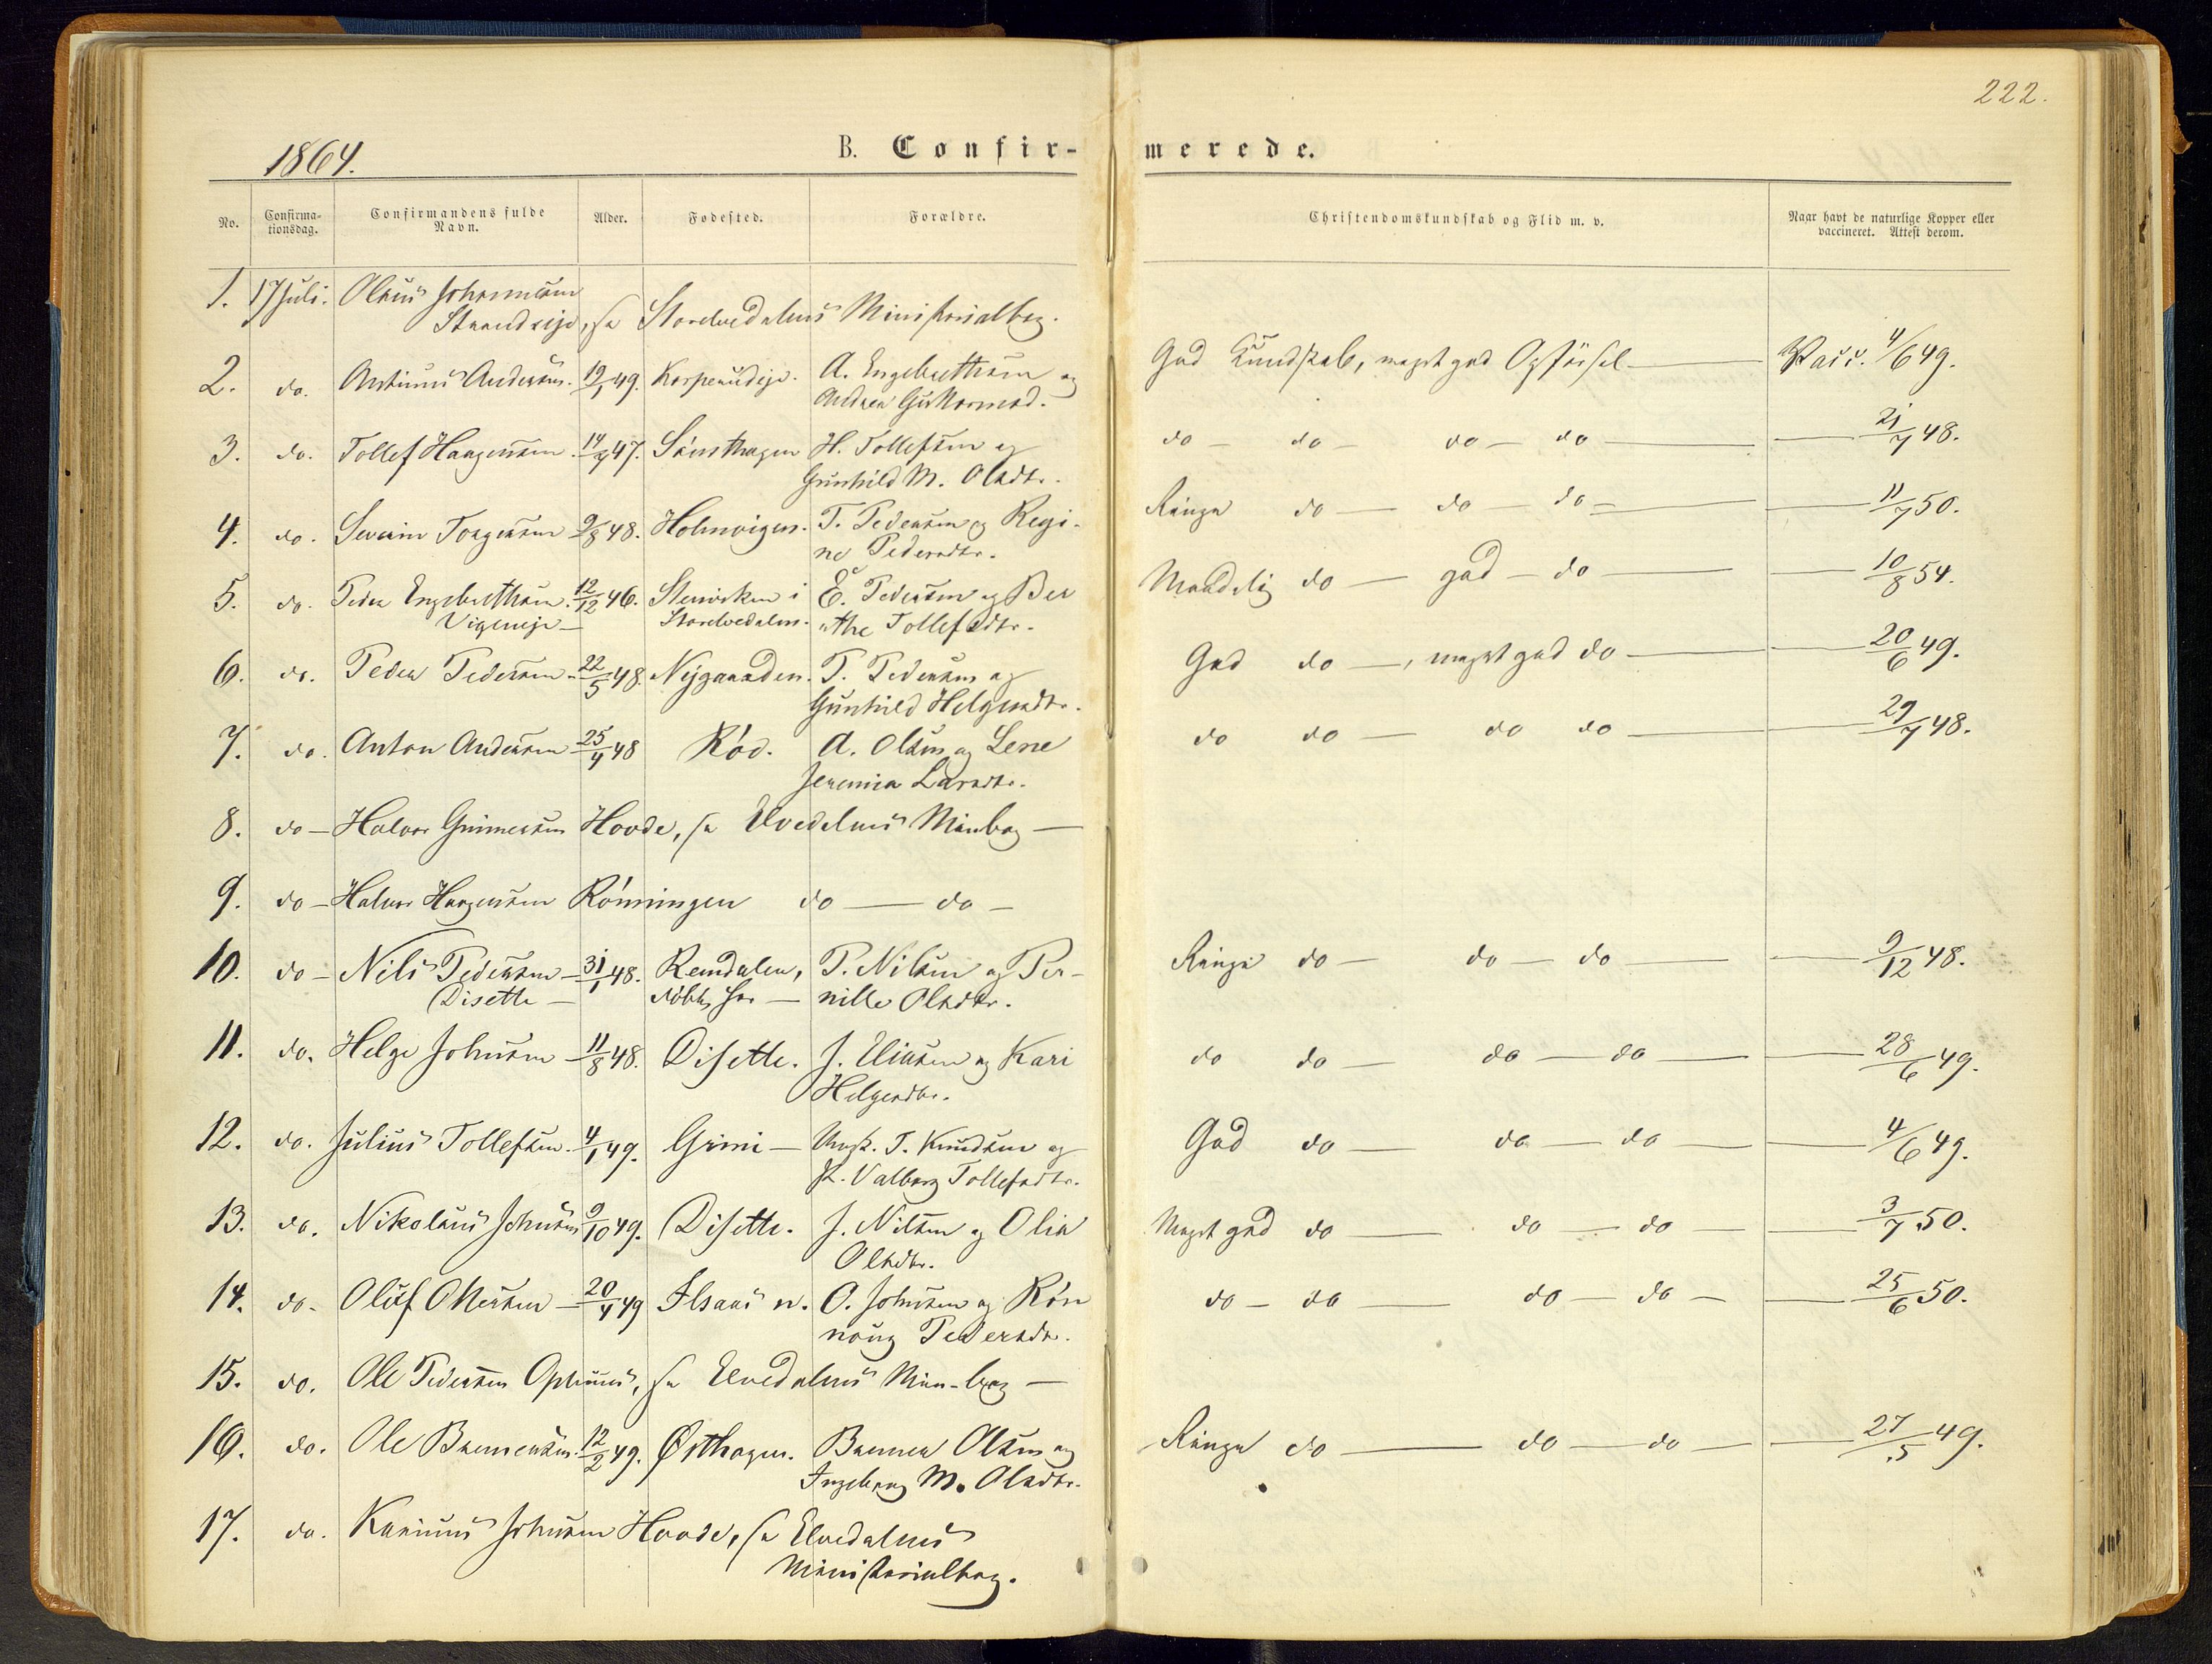 222.
1864.
B. Confir-
merede.
No. Confirma- Confirmandens fulde Alder. Fødested. Forældre.
tionsdag. Navn.
Christendomskundskab og Flid m. v. Naar havt de naturlige Kopper eller
vaccineret. Attest derom.
1. 17 Juli. Olaus Johannesen
se Storelvedalens Ministerialbog.
2. do. Andersen. 19/1 49. A. Engebrethsen og
Andrea
God Kundskab, meget god Opførsel Vacc. 4/6 49.
3. do. Tollef Haagensen 47. H. Tollefsen og
Gunhild M. Olsdtr.
do do do do 21/7 48.
4. do. Severin 9/8 48. Holmvigen. T. Pedersen og Regi-
ne Pedersdtr.
Ringe do do do 11/7 50.
5. do. Peder Engebrethsen 12/12 46. i E. Pedersen og Ber
Storelvedalen. the Tollefsdtr.
Maadelig do god do 10/8 54.
6. do. Peder Pedersen 22/5 48. Nygaarden. P. Pedersen og
Gunhild Helgesdtr.
God do, meget god do 20/6 49.
7. do. Anton Andersen 25/4 48 Rød. A. Olsen og Lene
Jeremia Larsdtr.
do do do do 29/7 48.
8. do Halvor Gunnersen Hovde, se Elvedalens Minbog
9. do Halvor Haagensen Rønningen do do
10. do Nils Pedersen 31/1 48. Remdalen, P. Nilsen og Per-
Disette nille Olsdtr.
Ringe do do do 9/12 48.
11. do. Helge Johnsen 11/8 48. Disette. J. Eliasen og Kari
Helgesdtr.
do do do do 28/6 49.
12. do. Julius Tollefsen 4/1 49. Grini T. Knudsen og
P. Valborg Tollefsdtr.
God do do do 4/6 49.
13. do. Nikolaus Johnsen 9/10 49. Disette. J. Nilsen og Olia
Olsdtr.
Meget god do do do 3/7 50.
14. do. Oluf Ottersen 20/4 49 O. Johnsen og Røn
noug Pedersdr.
do do do do 25/6 50.
15. do. Ole Pedersen Ophuus, se Elvedalens Min-bog
16. do. Ole 12/2 49. Østhagen. Olsen og
Ingeborg M. Olsdtr.
Ringe do do do 27/5 49.
17. do. Karinus Johnsen Hovde, se Elvedalens
Ministerialbog.